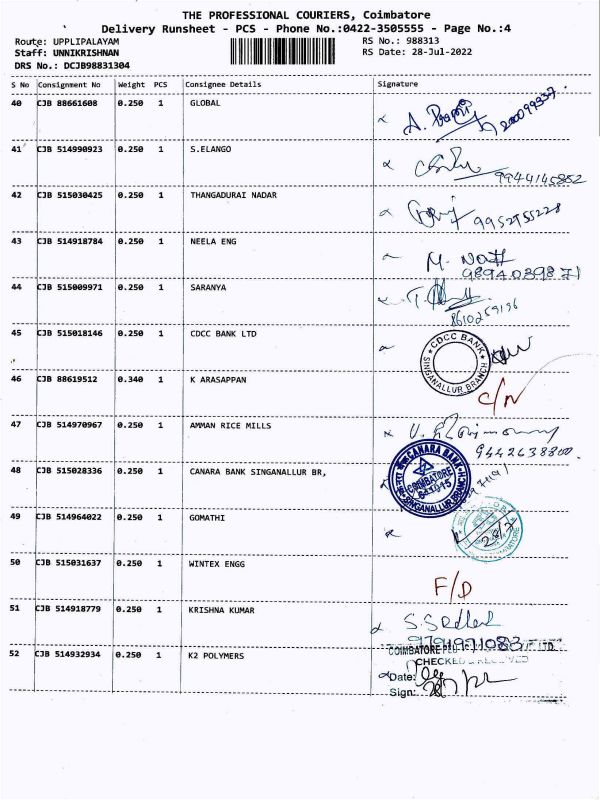 THE PROFESSIONAL COURIERS, Coimbatore
Delivery Runsheet - PCS - Phone No.:0422-3505555 - Page No.:4
Route: UPPLIPALAYAM RS No.: 988313
Staff: UNNIKRISHNAN RS Date: 28-Jul-2022
DRS No.: DCJB98831304
S No Consignment No Weight PCS Consignee Details Signature
40 CJB 88661608 0.250 1 GLOBAL
41 CJB 514990923 0.250 1 S.ELANGO
9944145852
42 CJB 515030425 0.250 1 THANGADURAI NADAR
9952755228
43 CJB 514918784 0.250 1 NEELA ENG M.
9894039871
44 CJB 515009971 0.250 1 SARANYA
8610259196
45 CJB 515018146 0.250 1 CDCC BANK LTD
CDCC BANK
SINGANALLUR BRANCH
46 CJB 88619512 0.340 1 K ARASAPPAN C/N
47 CJB 514970967 0.250 1 AMMAN RICE MILLS
9442638800
48 CJB 515028336 0.250 1 CANARA BANK SINGANALLUR BR,
CANARA BANK
COIMBATORE
641015
SINGANALLUR BRANCH
49 CJB 514964022 0.250 1 GOMATHI
28/7
50 CJB 515031637 0.250 1 WINTEX ENGG
F/D
51 CJB 514918779 0.250 1 KRISHNA KUMAR
9791971083
52 CJB 514932934 0.250 1 K2 POLYMERS
COIMBATORE LTD
CHECKED & RECEIVED
Date:
Sign: